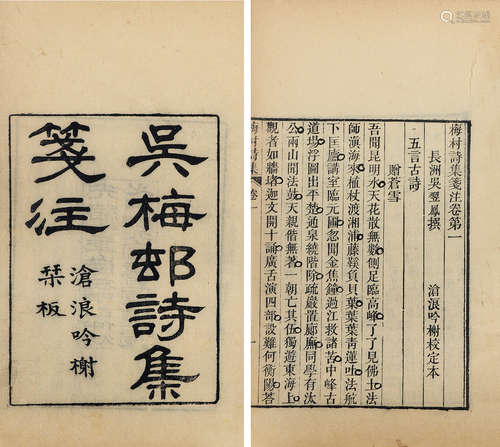 吳梅邨詩集
箋注
滄浪吟榭
栞板
梅村詩集箋注卷第一
長洲吳翌鳳撰 滄浪吟榭校定本
五言古詩
贈蒼雪
吾聞昆明水天花散無數側足臨高峰了了見佛土法
師滇海來植杖渡湘浦藤鞵負貝葉葉葉青蓮吐法航
下匡廬講室臨元圃忽聞金焦鐘過江救諸苦中峰古
道場浮圖出平楚通泉繞階除疏巖置廊廡同學有汰
公兩山聞法鼓天親偕無著一朝亡其伍獨遊東海上
觀者如牆堵迦文開十誦廣舌演四部設難何衡陽答
梅村詩集 卷一